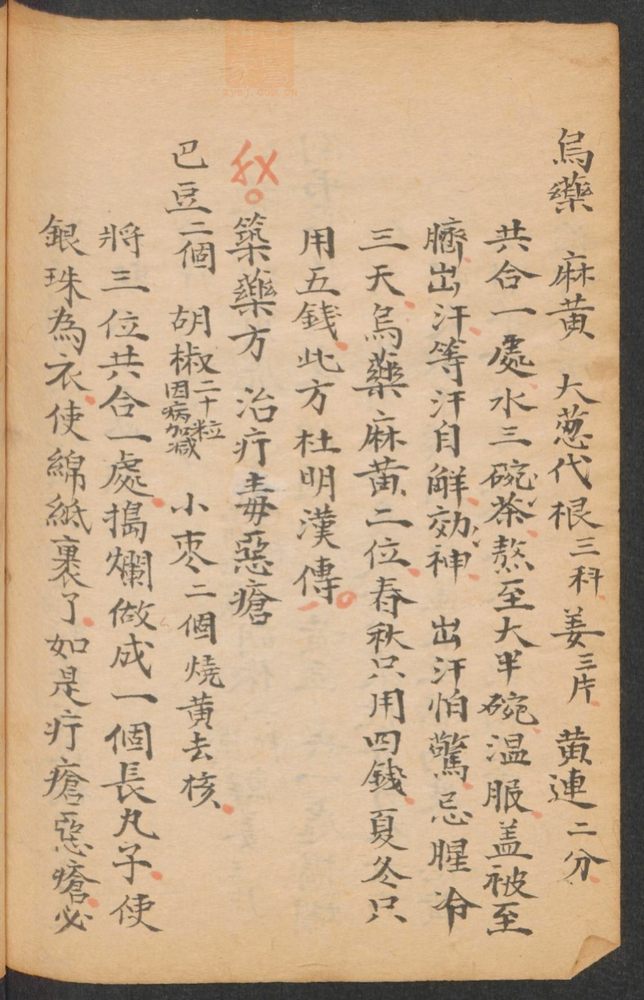 烏藥 麻黃 大葱代根三科 姜三片 黄連二分
共合一處水三碗茶熬至大半碗温服盖被至
臍出汗等汗自鮮効神 出汗怕驚忌腥冷
三天烏藥麻黄二位春秋只用四錢夏冬只
用五錢此方杜明漢傳
築藥方 治疔毒惡瘡
巴豆二個 胡椒二十粒因病加减 小枣二個燒黄去核
將三位共合一處搗爛做成一個長丸子使
銀珠為衣使綿紙裹了如是疔瘡惡瘡必